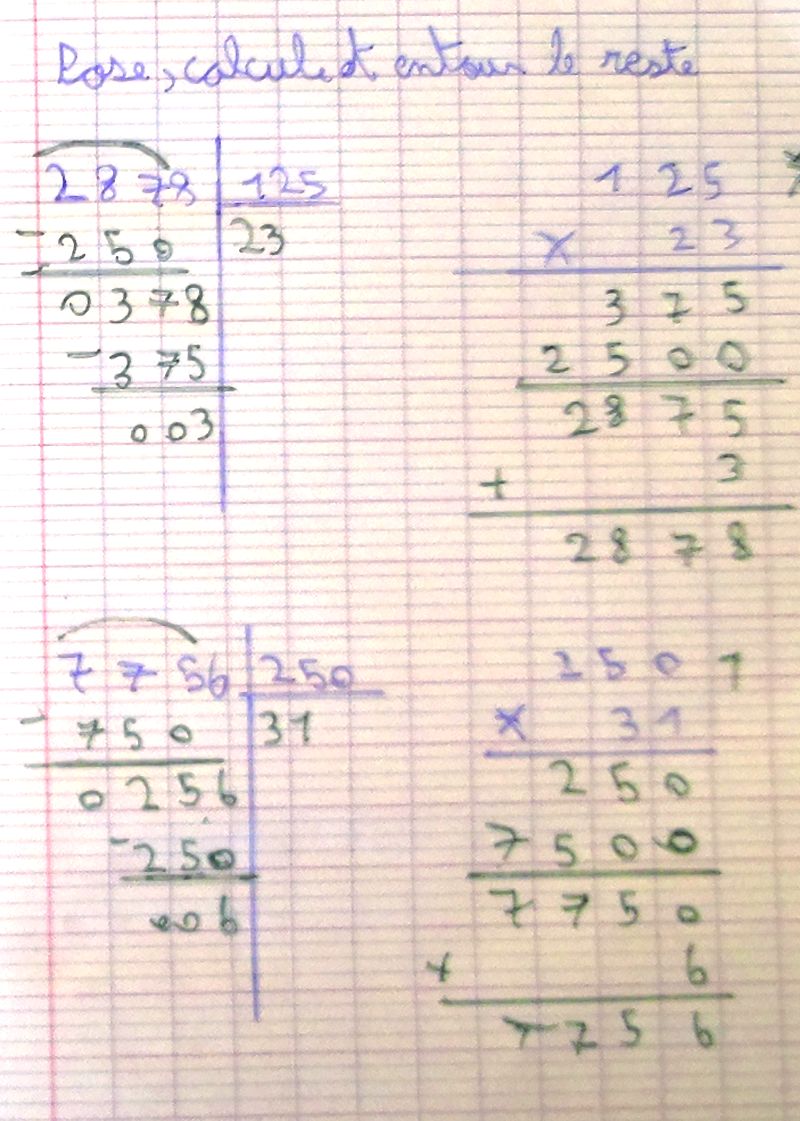 Pose, calcule et entoure le reste
2878 125
- 250 23
0378
- 375
003
125
x 23
375
2500
2875
+ 3
2878
7756 250
- 750 31
0256
- 250
006
250
x 31
250
7500
7750
+ 6
7756